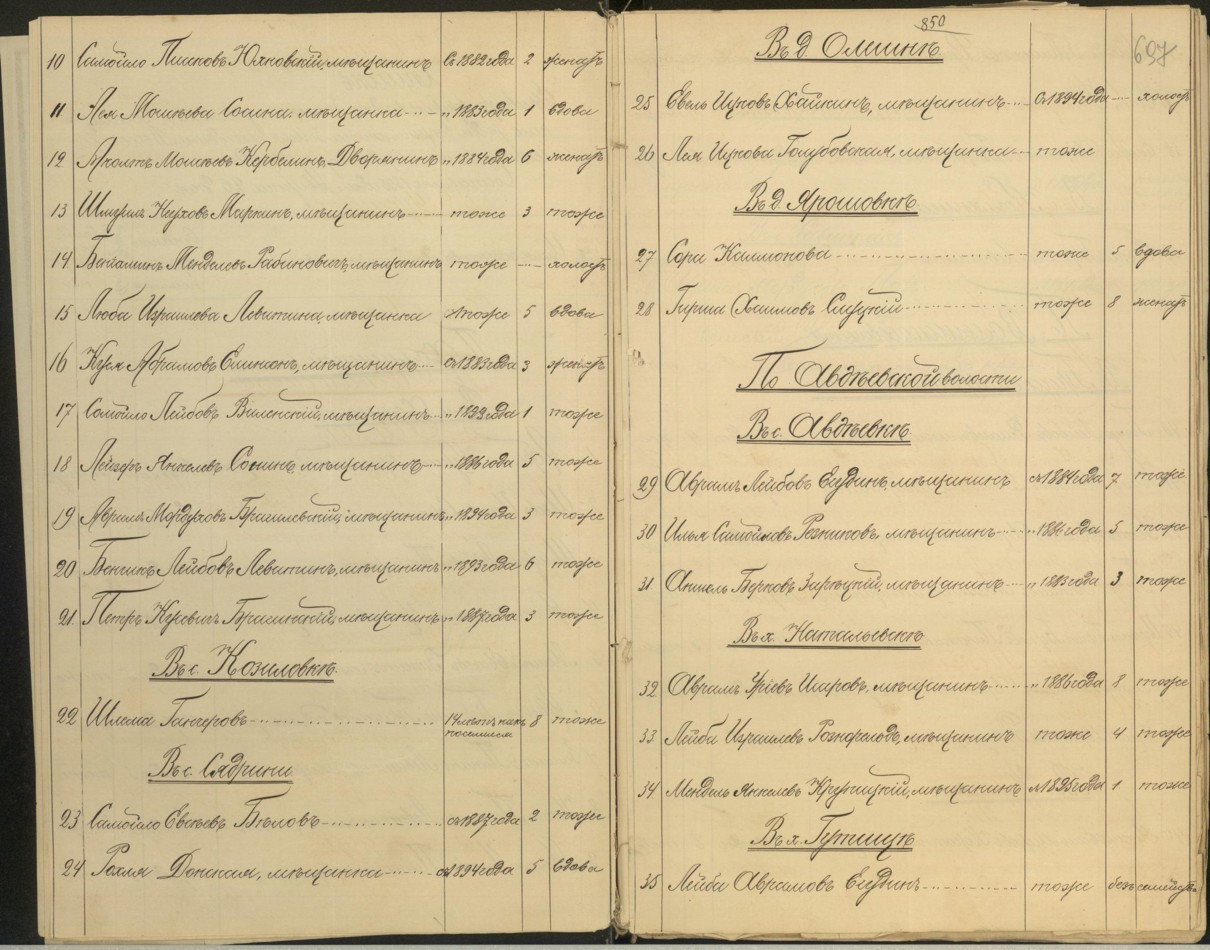 10 Самойло Пинховъ Юхновскій, мѣщанинъ съ 1882 года 2 женатъ
11 Лея Мошкова Сосина. мѣщанка „ 1883 года 1 вдова
12 Мошковъ Кербелинъ, Дворянинъ „ 1884 года 6 женатъ
13 Маркинъ, мѣщанинъ тоже 3 тоже
14 Беньаминъ Менделевъ Рабиновичъ, мѣщанинъ тоже холостъ
15 Люба Израилева Левитина, мѣщанка тоже 5 вдова
16 Абрамовъ мѣщанинъ съ 1883 года 3 женатъ
17 Самойло Лейбовъ Виленскій, мѣщанинъ „ 1899 года 1 тоже
18 Лейзеръ Янкелевъ Сонинъ мѣщанинъ „ 1886 года 5 тоже
19 Абрамъ Мордуховъ Брагилевскій, мѣщанинъ „ 1894 года 3 тоже
20 Лейбовъ Левитинъ, мѣщанинъ „ 1893 года 6 тоже
21 Петръ Брагинскій, мѣщанинъ „ 1887 года 3 тоже
Въ с. Козиловкѣ.
22 Шлема 14 лѣтъ какъ поселился 8 тоже
Въ с. Сядрини.
23 Самойло Евсѣевъ Бѣловъ съ 1887 года 2 тоже
24 Рохля Донская, мѣщанка съ 1894 года 5 вдова
850
697
Въ д. Олшинкѣ.
25 Евель Ицковъ Хайкинъ, мѣщанинъ съ 1894 года холостъ
26 Лея Ицкова Голубовская, мѣщанка тоже
Въ д. Ярошовкѣ.
27 Сора Калмонова тоже 5 вдова
28 Гирша Хаимовъ Слуцкій тоже 8 женатъ
По Авдѣевской волости
Въ с. Авдѣевкѣ.
29 Абрамъ Лейбовъ мѣщанинъ съ 1884 года 7 тоже
30 Илья Самойловъ Резниковъ, мѣщанинъ „ 1880 года 5 тоже
31 Берковъ Зарѣцкій, мѣщанинъ „ 1883 года 3 тоже
Въ х. Натальевскѣ
32 Абрамъ Уріевъ Шаровъ, мѣщанинъ „ 1886 года 8 тоже
33 Лейба Израилевъ мѣщанинъ тоже 4 тоже
34 Мендель Янкелевъ Крупицкій, мѣщанинъ съ 1895 года 1 тоже
Въ х. Гутищѣ
35 Лейба Абрамовъ тоже безъ семейства